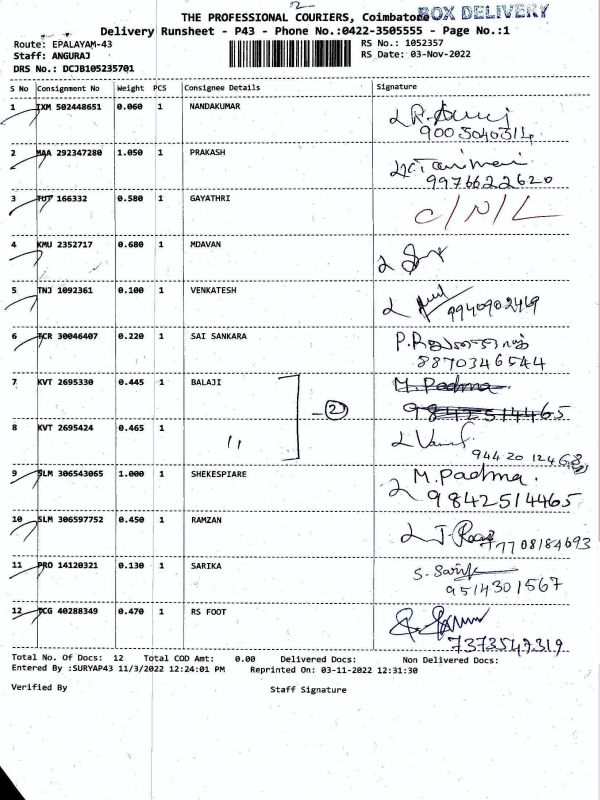 2
THE PROFESSIONAL COURIERS, Coimbatore
BOX DELIVERY
Delivery Runsheet - P43 - Phone No.:0422-3505555 - Page No.:1
Route: EPALAYAM-43 RS No.: 1052357
Staff: ANGURAJ RS Date: 03-Nov-2022
DRS No.: DCJB105235701
S No Consignment No Weight PCS Consignee Details Signature
1 IXM 502448651 0.060 1 NANDAKUMAR
2 MAA 292347280 1.050 1 PRAKASH
9976622620
3 TUT 166332 0.580 1 GAYATHRI C/N/L
4 KMU 2352717 0.680 1 MDAVAN
5 TNJ 1092361 0.100 1 VENKATESH
9940902469
6 TCR 30046407 0.220 1 SAI SANKARA
8870346544
7 KVT 2695330 0.445 1 BALAJI M. Padma
2 9842514465
8 KVT 2695424 0.465 1 "
9 SLM 306543065 1.000 1 SHEKESPIARE M. Padma.
9842514465
10 SLM 306597752 0.450 1 RAMZAN
7708184693
11 PRO 14120321 0.130 1 SARIKA
9514301567
12 TCG 40288349 0.470 1 RS FOOT
7373549319
Total No. Of Docs: 12 Total COD Amt: 0.00 Delivered Docs: Non Delivered Docs:
Entered By :SURYAP43 11/3/2022 12:24:01 PM Reprinted On: 03-11-2022 12:31:30
Verified By Staff Signature